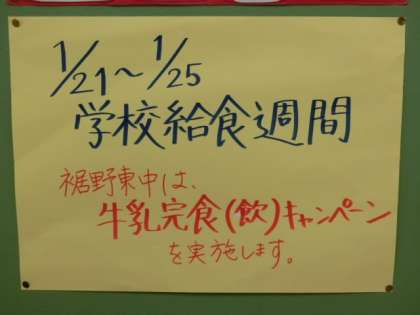 1/21～1/25
学校給食週間
裾野東中は、
牛乳完食(飲)キャンペーン
を実施します。